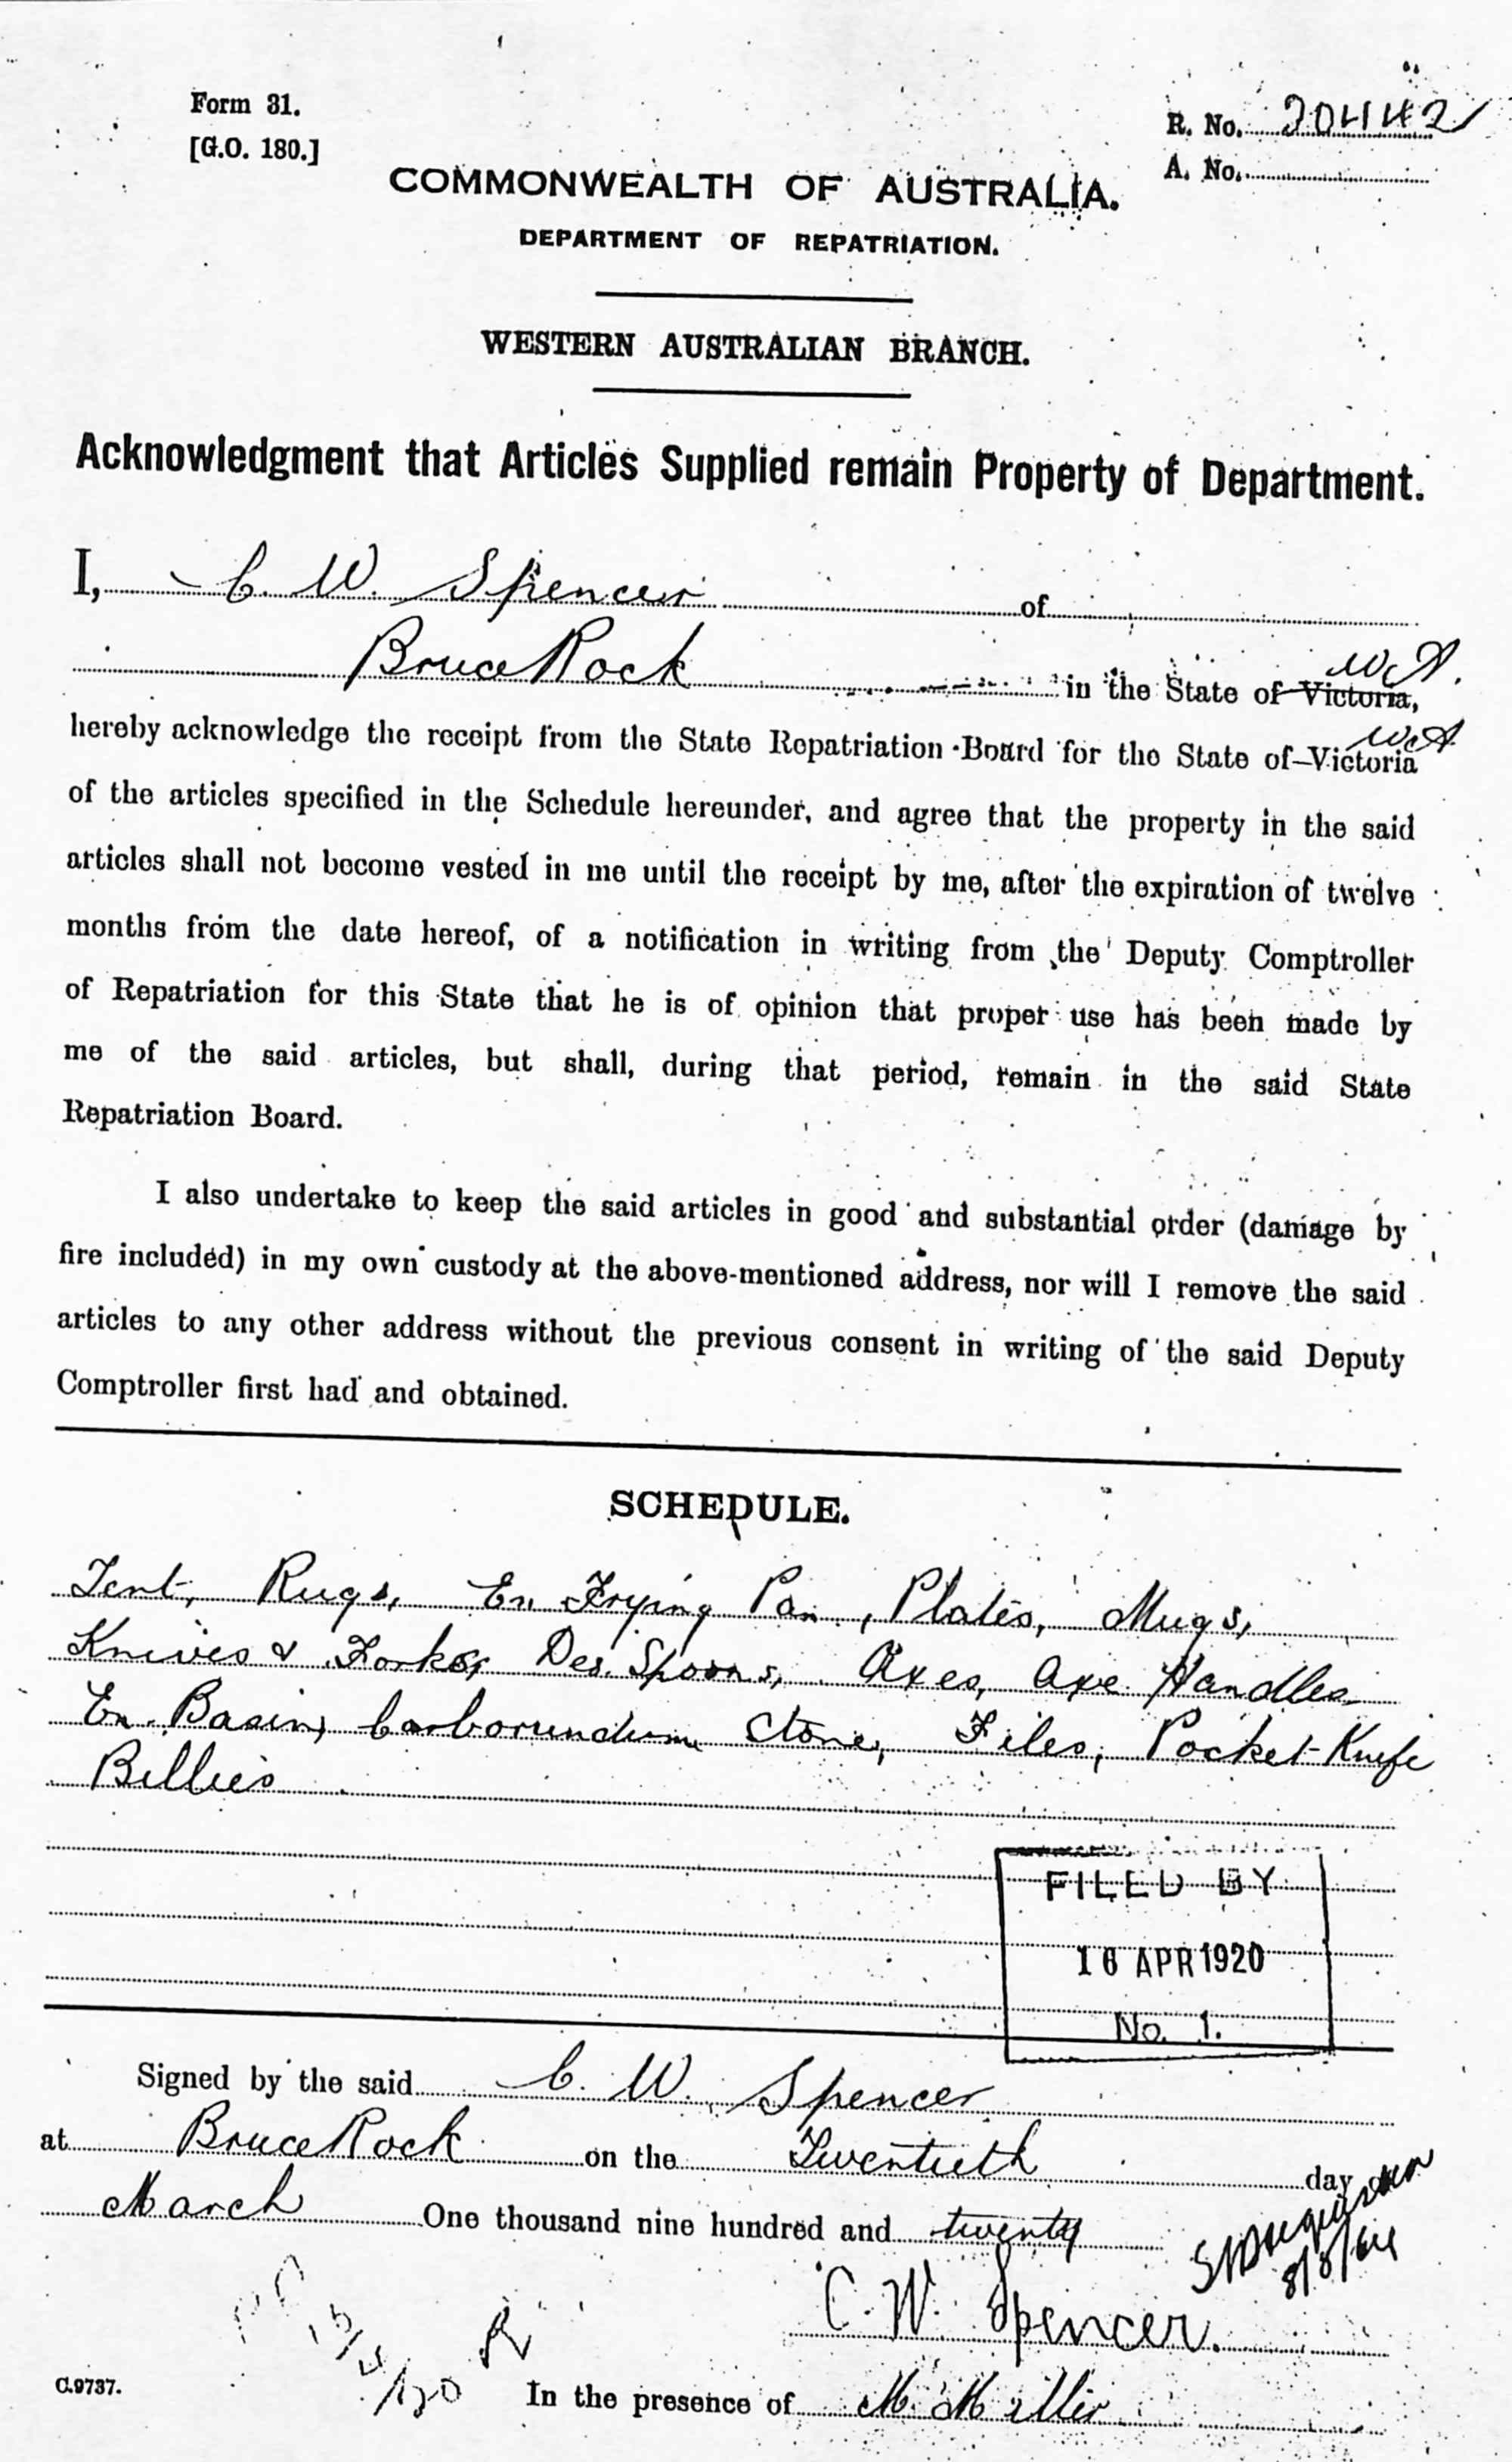 Form 31.
[G.O. 180.]
R. No. 20442
A. No.
COMMONWEALTH OF AUSTRALIA.
DEPARTMENT OF REPATRIATION.
WESTERN AUSTRALIAN BRANCH.
Acknowledgment that Articles Supplied remain Property of Department.
I, C. W. Spencer of
Bruce Rock in the State of Victoria, W.A.
hereby acknowledge the receipt from the State Repatriation Board for the State of Victoria W.A
of the articles specified in the Schedule hereunder, and agree that the property in the said
articles shall not become vested in me until the receipt by me, after the expiration of twelve
months from the date hereof, of a notification in writing from the Deputy Comptroller
of Repatriation for this State that he is of opinion that proper use has been made by
me of the said articles, but shall, during that period, remain in the said State
Repatriation Board.
I also undertake to keep the said articles in good and substantial order (damage by
fire included) in my own custody at the above-mentioned address, nor will I remove the said
articles to any other address without the previous consent in writing of the said Deputy
Comptroller first had and obtained.
SCHEDULE.
Tent, Rugs, En Frying Pan, Plates, Mugs,
Knives & Forks, Des. Spoons, Axes, Axe Handles
En. Basin, Carborundum Stone, Files, Pocket-Knife
Billies
FILED BY
16 APR 1920
No. 1.
Signed by the said C. W. Spencer
at Bruce Rock on the Twentieth day
March One thousand nine hundred and twenty
8/8/64
C. W. Spencer.
C.9737.
In the presence of M. Miller